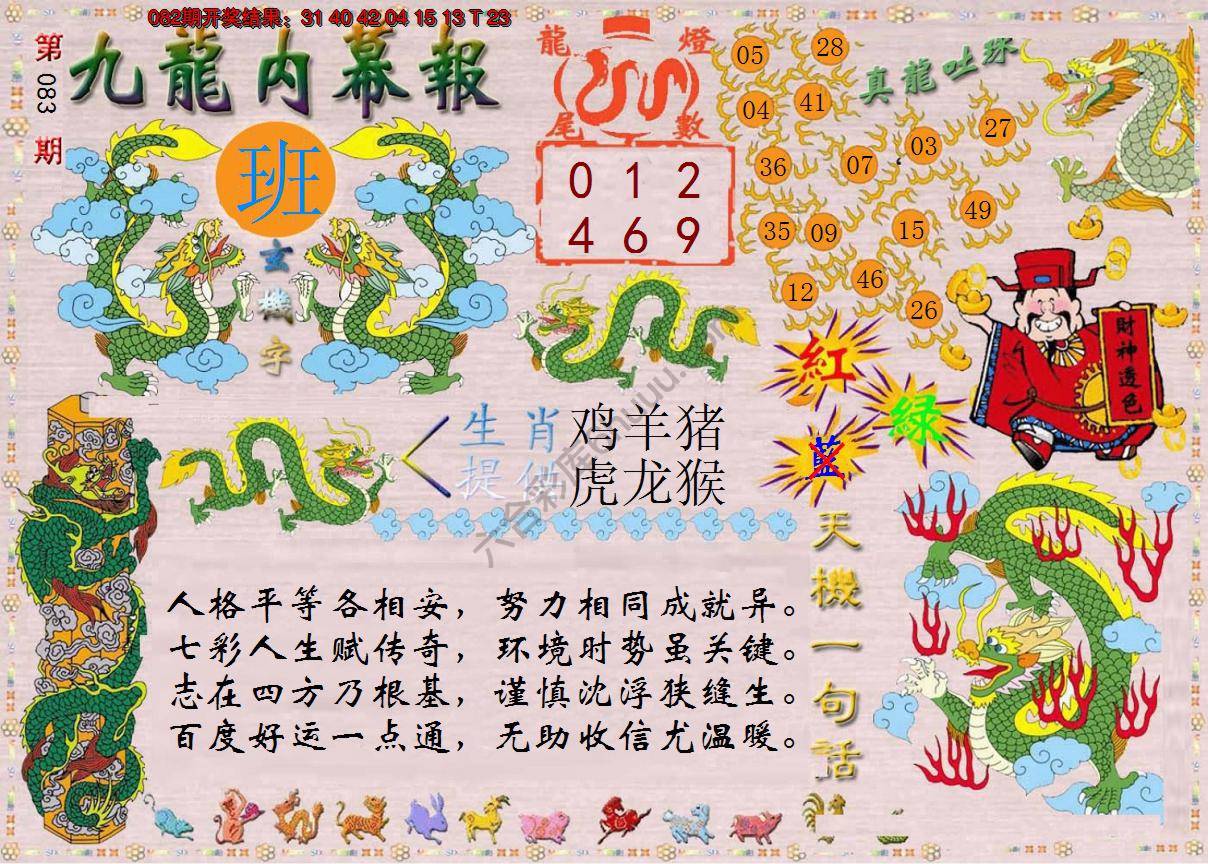 082期开奖结果：31 40 42 04 15 13 T 23
第083期
九龍内幕報
班
玄機字
龍燈
尾數
0 1 2
4 6 9
真龍吐珠
05 28
04 41
36 07 03 27
35 09 15 49
12 46 26
財神透色
紅
綠
藍
生肖 鸡羊猪
提供 虎龙猴
天機一句話
人格平等各相安，努力相同成就异。
七彩人生赋传奇，环境时势虽关键。
志在四方乃根基，谨慎沈浮狭缝生。
百度好运一点通，无助收信尤温暖。